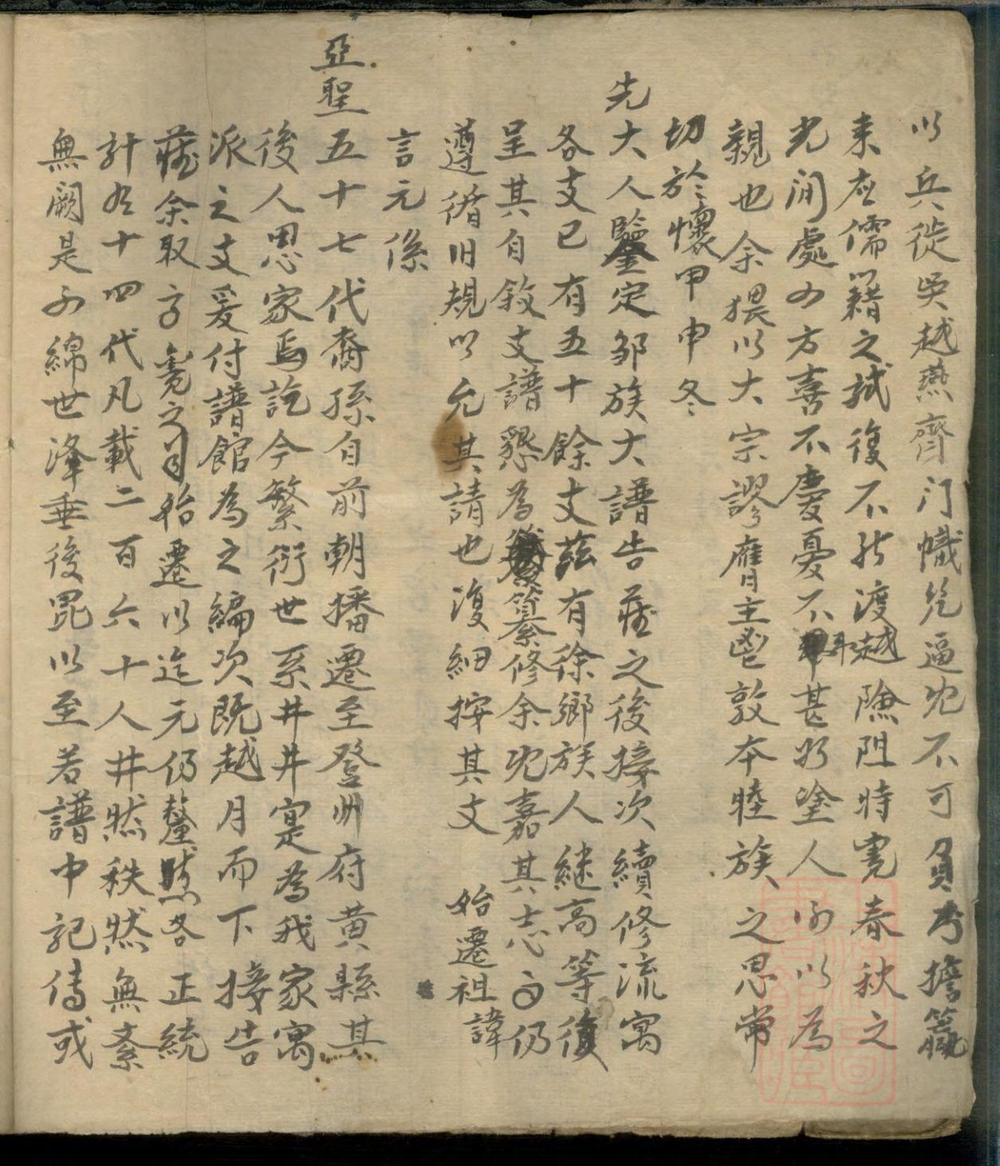 以兵徙吳越燕齊门幟兇逼况不可負为擔簦
来应儒籍之拭復不能渡越險阻特寬春秋之
光闲處之方喜不慶憂不耳甚於塗人以為
親也余猥以大宗謬膺主鬯敦本睦族之思常
切於懷甲申冬
先大人鑒定邹族大譜告蕆之後接次續修流寓
各支已有五十餘支茲有徐鄉族人継高等復
呈其自敘支譜懇為纂修余况嘉其志而仍
遵循旧規以允其請也復細按其文 始遷祖諱
言元係
亞聖五十七代裔孫自前朝播遷至登州府黄縣其
後人思家焉訖今繁衍世系井井寔為我家寓
派之支爰付譜館為之编次既越月而下接告
蕆余取之始遷以迄元仍釐然各正統
計有十四代凡載二百六十人井然秩然無紊
無闕是可綿世澤垂後昆以至若譜中記傳或